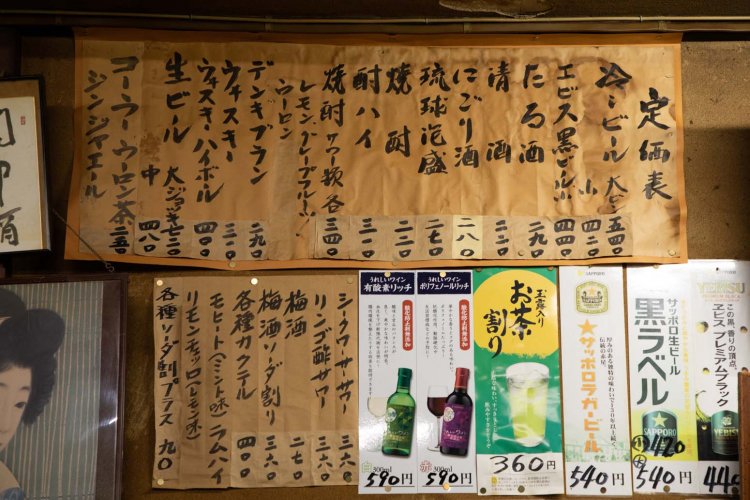 定価表
冷ービール 大ビン 五四〇
小 四二〇
エビス黒ビール小 四四〇
たる酒 二九〇
清酒 二〇〇
にごり酒 二八〇
琉球泡盛 二七〇
焼酎 二二〇
酎ハイ 三一〇
焼酎 サワー類各 三四〇
レモン、グレープフルーツ
ウーロン
デンキブラン 二九〇
ウヰスキー 三一〇
ウヰスキーハイボール 四〇〇
生ビール 大ジョッキ 七二〇
中 四八〇
コーラー・ウーロン茶 二五〇
ジンジャエール
シークワーサーサワー 三六〇
リンゴ酢サワー 三六〇
梅酒 二七〇
梅酒ソーダ割り 三六〇
各種カクテル 三六〇
モヒート(ミント味)ラムハイ 四〇〇
リモンチェッロ(レモン味)
各種ソーダ割プラス 九〇
うれしいワイン
有酸素リッチ
酸化防止剤無添加
白 300ml
590円
うれしいワイン
ポリフェノールリッチ
酸化防止剤無添加
赤 300ml
590円
玉露入り
お茶割り
360円
SAPPORO
厚みのある独特の味わいで130年以上続く
伝統の赤星。
★サッポロラガービール
540円
SAPPORO
サッポロ生ビール
黒ラベル
SAPPORO
小 420
中 540円
YEBISU
この黒、香りの頂点。
ヱビス プレミアムブラック
YEBISU
440